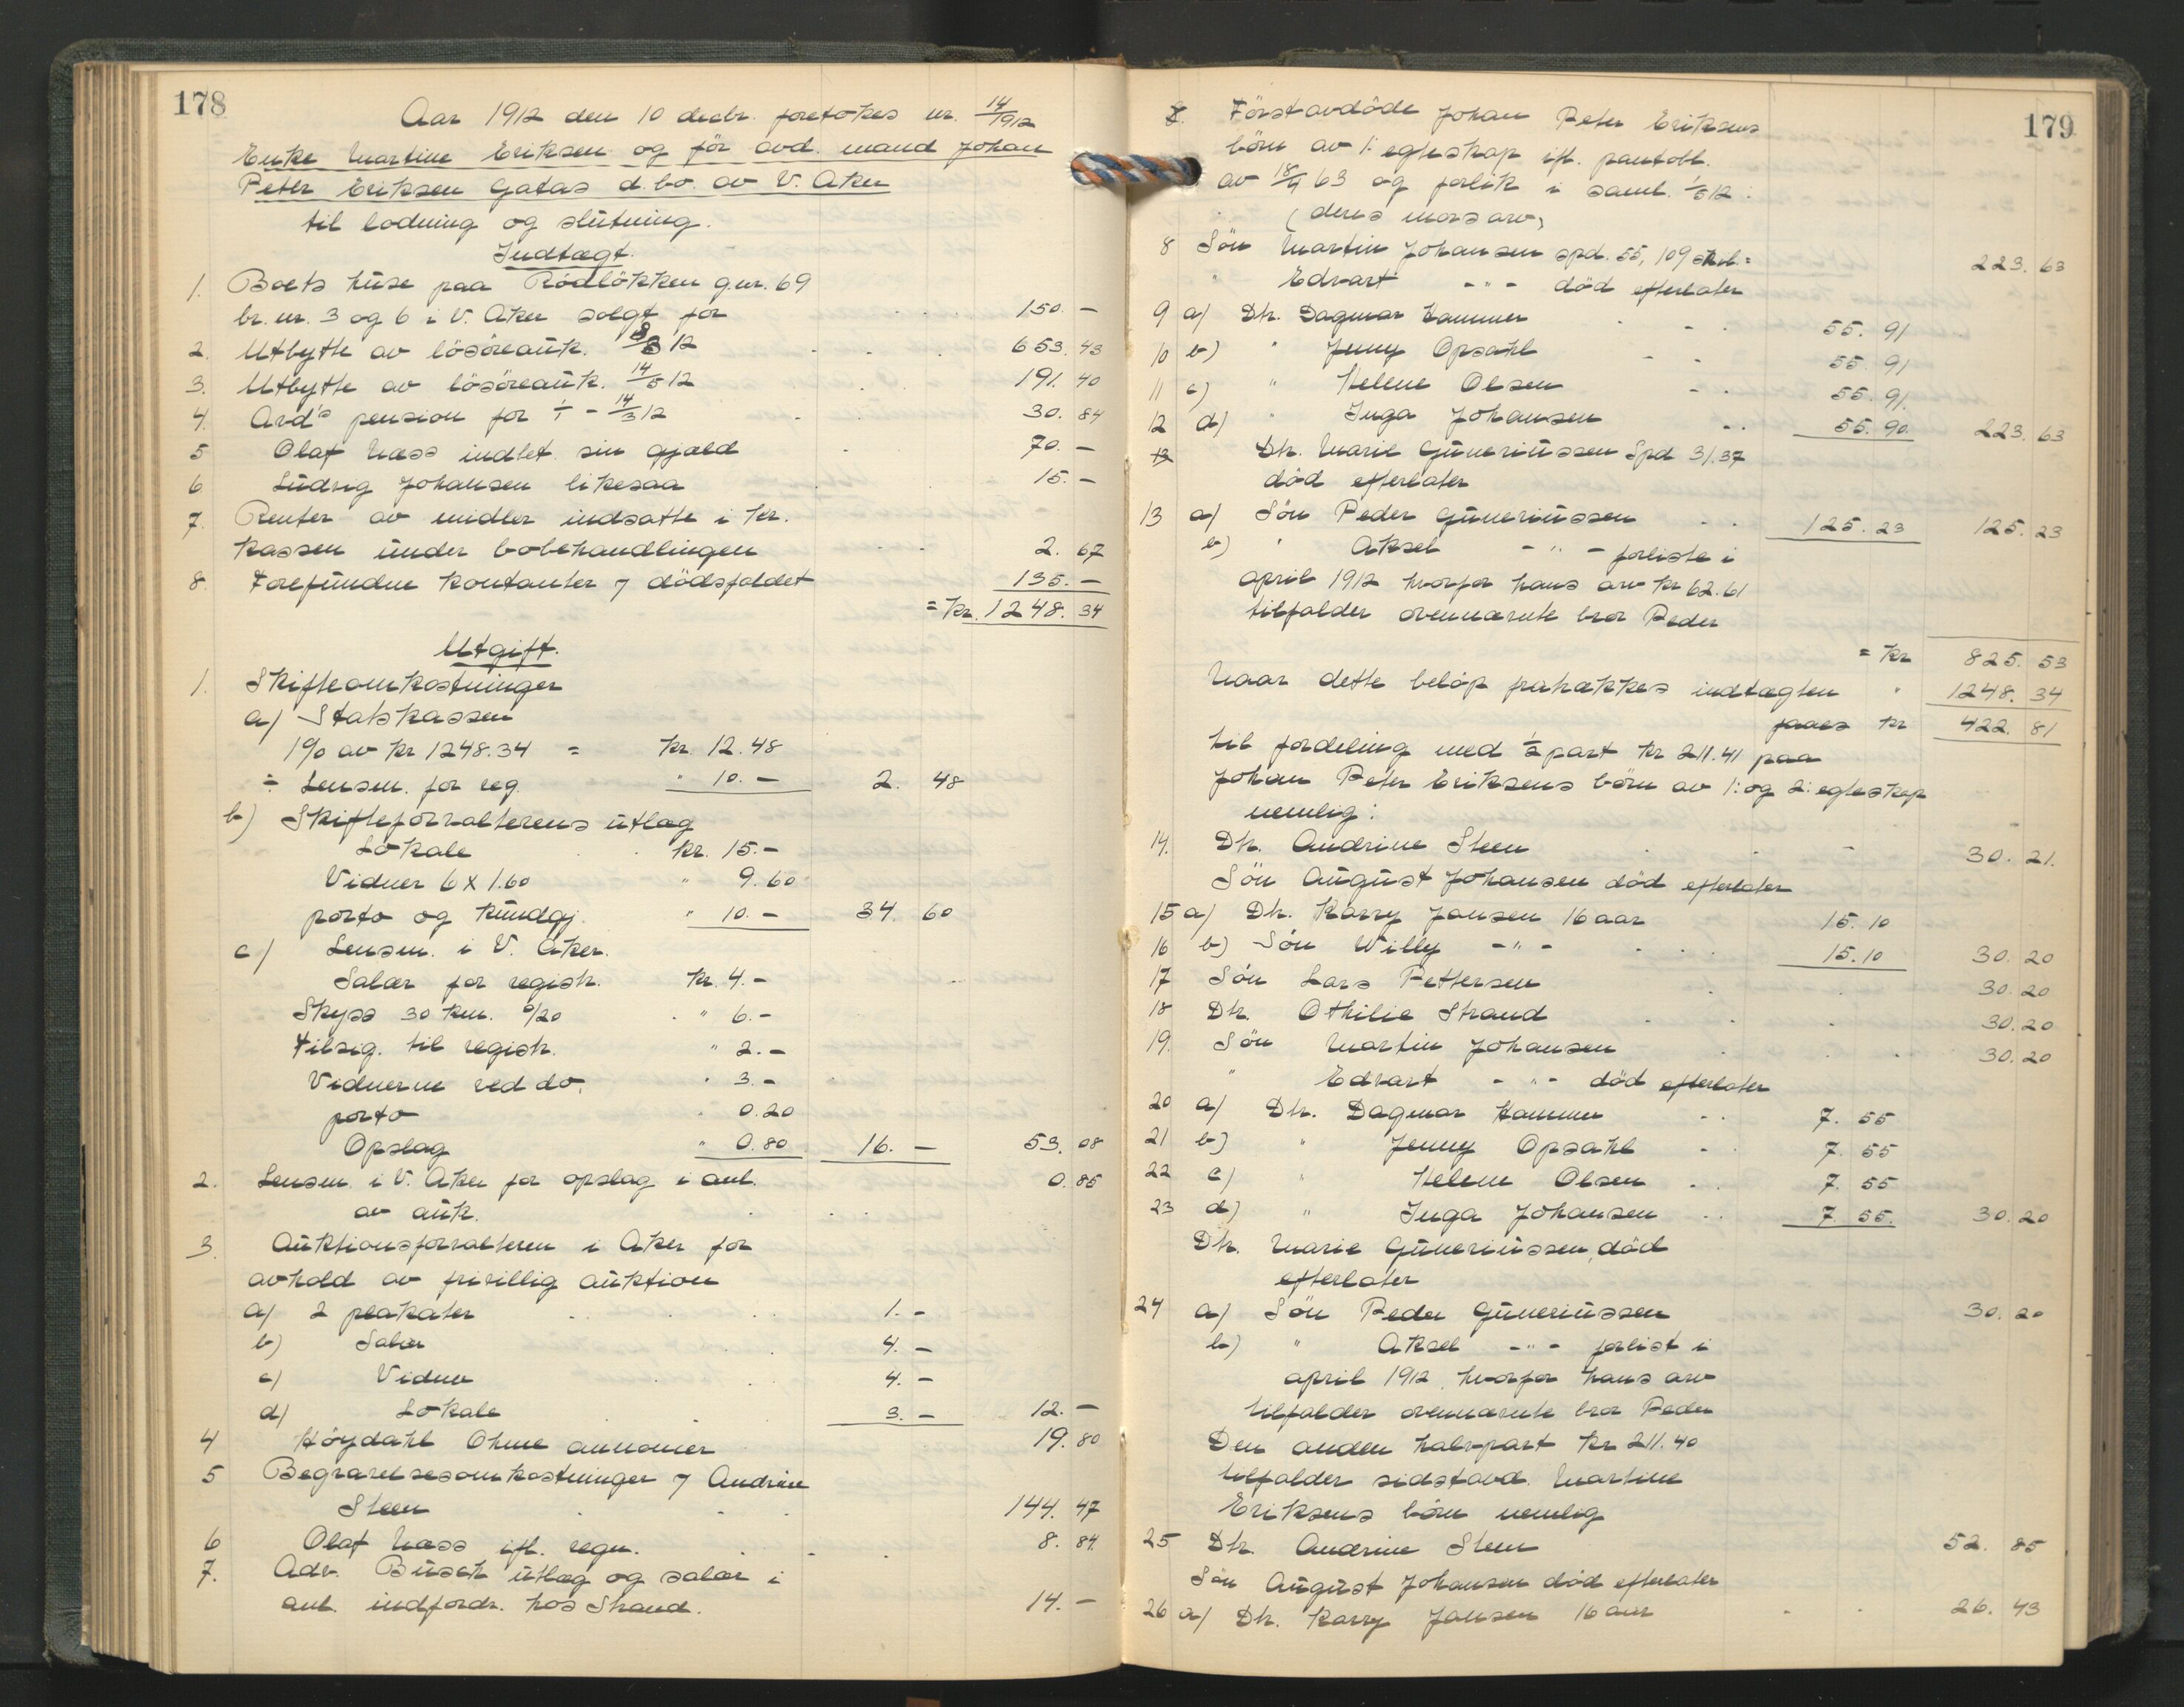 178
Aar 1912 den 10 decbr. foretokes nr. 14/1912
Enke Martine Eriksen og för avd. mand Johan
Peter Eriksen Gatas d. bo. av V. Aker
til lodning og slutning.
Indtægt.
1. Boets huse paa Rödlökken g.nr. 69
br. nr. 3 og 6 i V. Aker solgt for 150. –
2. Utbytte av lösöreauk. 12 653. 43
3. Utbytte av lösöreauk. 14/5 12 191. 40
4. Avd's pension for ÷ - 14/3 12 30. 84
5 Olaf Næss indbet. sin gjæld 70. –
6 Ludvig Johansen likesaa 15. –
7. Renter av midler indsatte i kr.
kassen under bobehandlingen 2. 67
8. Forefundne kontanter v dödsfaldet 135. –
= Kr. 1248. 34
Utgift.
1. Skifteomkostninger
a) Statskassen
1% av kr 1248.34 = Kr. 12.48
÷ Lensm. for reg. " 10. – 2. 48
b) Skifteforvalterens utlæg
Lokale kr. 15. –
Vidner 6 x 1.60 " 9.60
porto og kundgj. " 10. – 34. 60
c) Lensm. i V. Aker.
Salær for registr. kr. 4. –
Skyss 30 km. à/20 " 6. –
Tilsig. til registr. " 2. –
Vidnerne ved do. " 3. –
porto " 0.20
Opslag " 0.80 16. – 53. 08
2. Lensm. i V. Aker for opslag i anl. 0. 85
av auk.
3. Auktionsforvalteren i Aker for
avhold av frivillig auktion
a) 2 plakater 1. –
b) Salær 4. –
c) Vidner 4. –
d) Lokale 3. – 12. –
4 Höydahl Ohme annoncer 19. 80
5 Begravelsesomkostninger v Andrine
Steen 144. 47
6 Olaf Næss ifl. regn. 8. 84
7. Adv. Busch utlæg og salær i
anl. indfordr. hos Strand. 14. –
179
8. Förstavdöde Johan Peter Eriksens
börn av 1: egteskap ifl. pantobl.
av 18/9 63 og forlik i saml. 1/5 12:
(deres mors arv)
8 Sön Martin Johansen spd. 55, 109 skil. = 223. 63
" Edvart - " - död efterlater
9 a) Dtr. Dagmar Hammer 55. 91
10 b) " Jenny Opsahl 55. 91
11 c) " Helene Olsen 55. 91.
12 d) " Inga Johansen 55. 90. 223. 63
13 Dtr. Marie Guneriussen Spd 31.37
död efterlater
13 a) Sön Peder Guneriussen 125. 23 125. 23
b) " Aksel - " - forliste i
april 1912 hvorfor hans arv kr 62.61
tilfalder ovennævnte bror Peder
= kr 825. 53
Naar dette belöp fratrækkes indtægten " 1248. 34
faaes kr 422. 81
til fordeling med ½ part kr 211.41 paa
Johan Peter Eriksens börn av 1: og 2: egteskap
nemlig:
14. Dtr. Andrine Steen 30. 21.
Sön August Johansen död efterlater
15 a) Dtr. Karry Jansen 16 aar 15. 10
16 b) Sön Willy - " - 15. 10 30. 20
17 Sön Lars Pettersen 30. 20
18 Dtr. Othilie Strand 30. 20
19. Sön Martin Johansen 30. 20
" Edvart - " - död efterlater
20 a) Dtr. Dagmar Hammer 7. 55
21 b) " Jenny Opsahl 7. 55
22 c) " Helene Olsen 7. 55
23 d) " Inga Johansen 7. 55. 30. 20
Dtr. Marie Guneriussen, död
efterlater
24 a) Sön Peder Guneriussen 30. 20
b) " Aksel - " - forlist i
april 1912, hvorfor hans arv
tilfalder ovennævnte bror Peder
Den anden halvpart kr 211.40
tilfalder sidstavd. Martine
Eriksens börn nemlig
25 Dtr. Andrine Steen 52. 85
Sön August Johansen död efterlater
26 a) Dtr. Karry Jansen 16 aar 26. 43